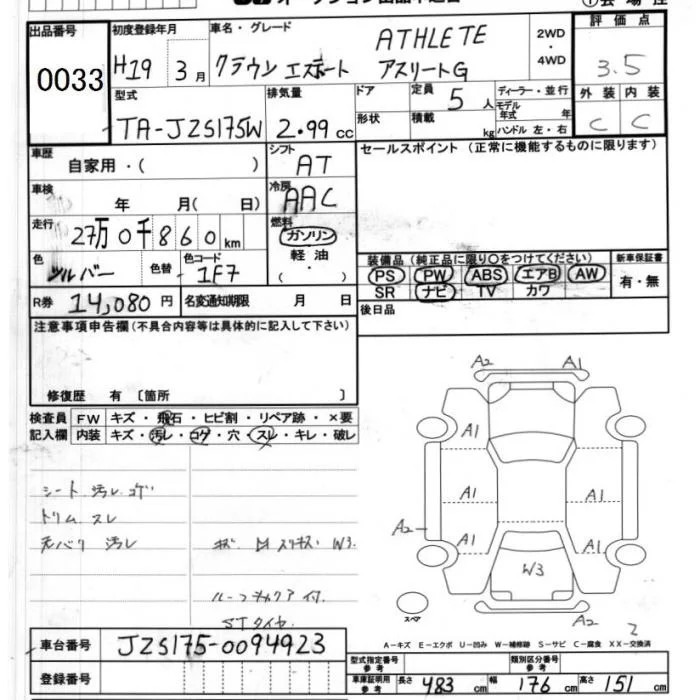 出品番号 0033
初度登録年月 H19 3月
車名・グレード ATHLETE
クラウン エステート アスリートG
2WD
・
4WD
評価点
3.5
型式 TA-JZS175W
排気量 2.99 cc
ドア 定員 5人
形状 積載 kg
ディーラー・並行
モデル年式 年
ハンドル 左・右
外装 内装
C C
車歴 自家用・( )
シフト AT
セールスポイント (正常に機能するものに限ります)
車検 年 月( 日)
冷房 AAC
走行 27万0千860km
燃料 ガソリン
軽油
( ・ )
色 シルバー 色替 色コード 1F7
装備品 (純正品に限り○をつけてください)
新車保証書
PS PW ABS エアB AW
有・無
SR ナビ TV カワ
R券 14,080円 名変通知期限 月 日
後日品
注意事項申告欄(不具合内容等は具体的に記入して下さい)
修復歴 有 〔箇所 〕
検査員 FW キズ・飛石・ヒビ割・リペア跡・×要
記入欄 内装 キズ・汚レ・コゲ・穴・スレ・キレ・破レ
シート 汚レ コゲ
トリム スレ
天バリ 汚レ
W3
付
STタイヤ
A2 A1
A1
A1 A1
A2
A1 A1
W3
スペア
A2
2
A-キズ E-エクボ U-凹み W-補修跡 S-サビ C-腐食 XX-交換済
車台番号 JZS175-0094923
登録番号
型式指定番号 参考 類別区分番号 参考
車庫証明用 参考 長さ 483 cm 幅 176 cm 高さ 151 cm